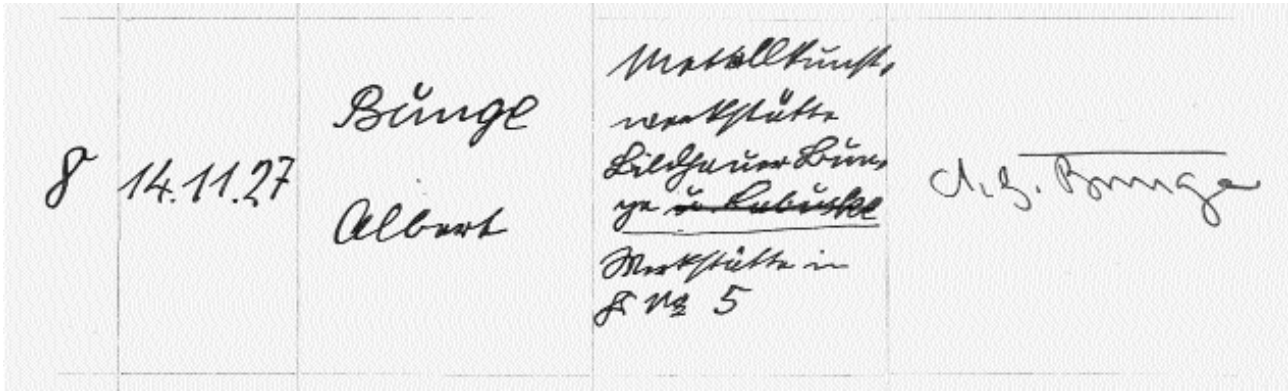 8 14.11.27
Bunge
Albert
Metallkunst-
werkstätte
Bildhauer Bun-
ge u. Labuske
Werkstätte in
No 5
A. H. Bunge